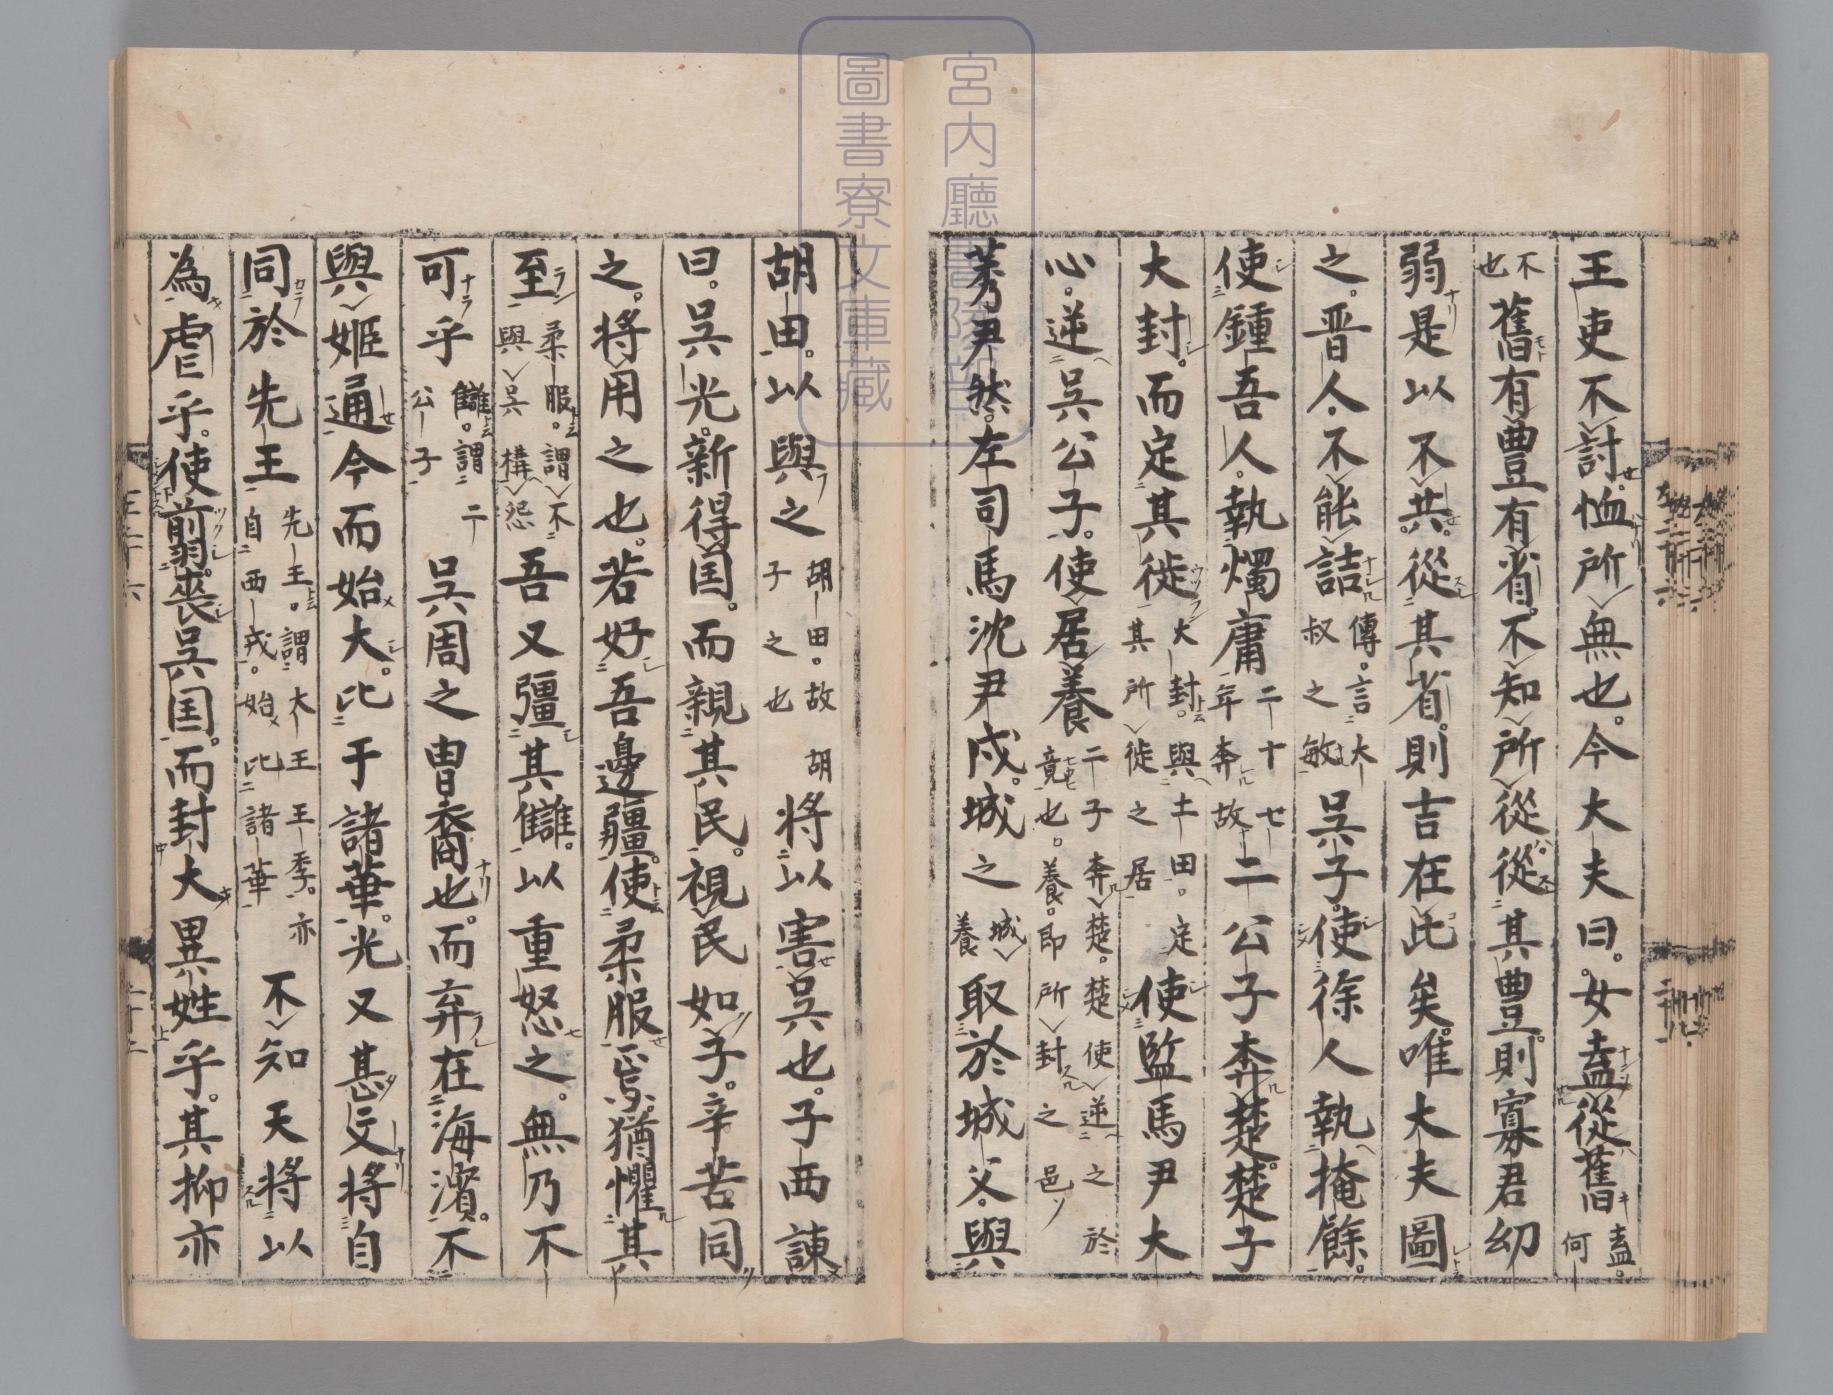 王吏不討恤所無也。今大夫曰。女盍從舊盍。何
不也舊有豊有省。不知所從從其豊。則寡君幼
弱是以不共。從其省。則吉在此矣。唯大夫圖
之。晋人不能詰傳。言大叔之敏呉子。使徐人執掩餘。
使鍾吾人。執燭庸二十七年奔故二公子奔楚。楚子
大封。而定其徙大封。與土田。定其所徙之居使監馬尹大
心。逆呉公子。使居養二子奔楚。楚使逆之於竟也。養。即所封之邑
莠尹然。左司馬沈尹戍。城之城養取於城父。與
胡田。以與之胡田。故胡子之也將以害呉也。子西諫
曰。呉光。新得国。而親其民。視民如子。辛苦同
之。将用之也。若好吾邊疆。使柔服焉。猶懼其
至柔服。謂不與呉構怨吾又彊其讎。以重怒之。無乃不
可乎讎。謂二公子呉周之冑裔也。而弃在海濱。不
與姬通今而始大。比于諸華。光又甚文将自
同於先王先王。謂大王王季。亦自西戎。始比諸華不知天将以
為虐乎。使翦喪呉国。而封大異姓乎。其抑亦
宮內廳書陵部
圖書寮文庫藏